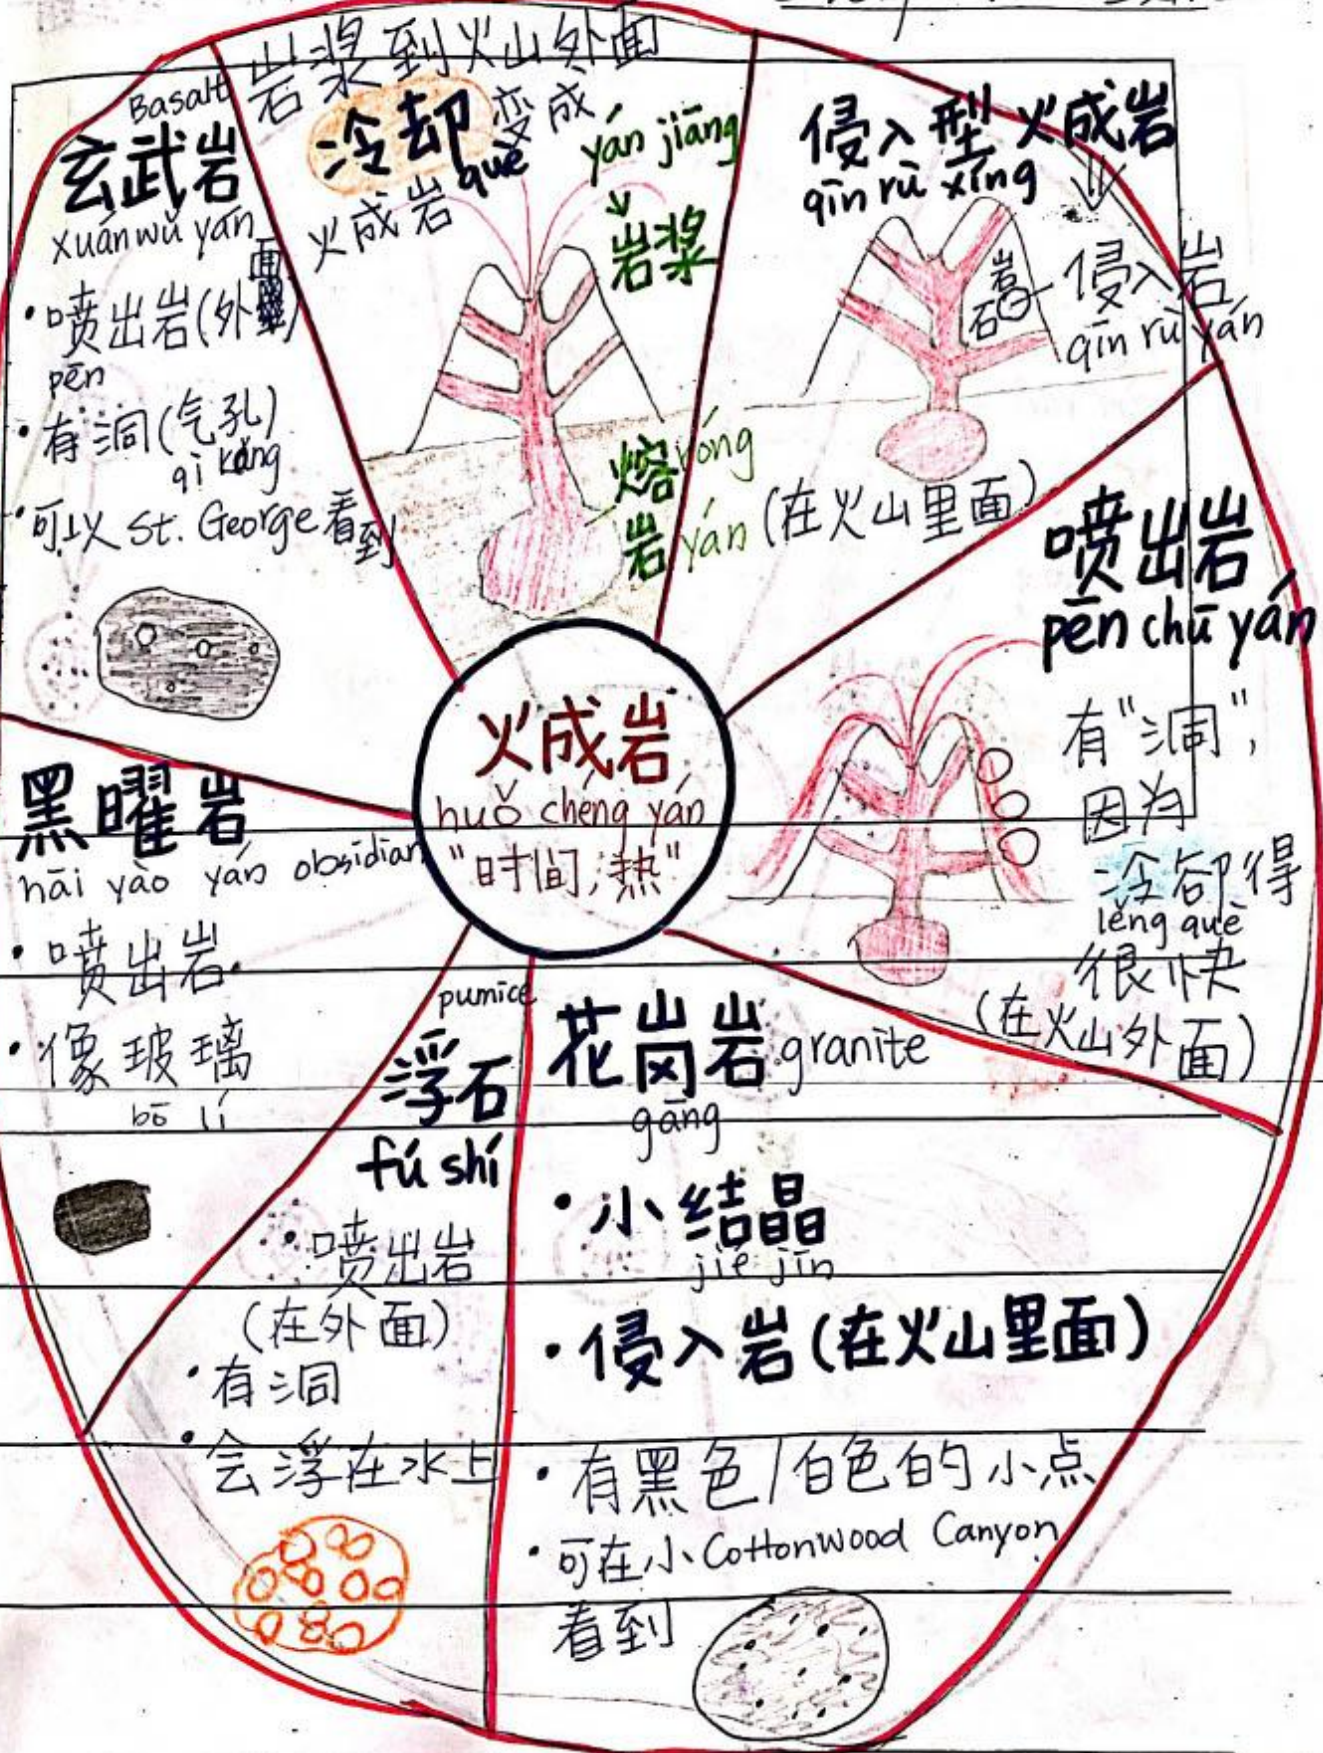 Basalt
玄武岩
xuán wǔ yán
• 喷出岩(外面)
pēn
• 有洞(气孔)
qì kǒng
• 可以 St. George 看到
岩浆到火山外面
冷却变成
què
火成岩
yán jiāng
岩浆
熔 róng
岩 yán
侵入型火成岩
qīn rù xíng
岩石
侵入岩
qīn rù yán
(在火山里面)
喷出岩
pēn chū yán
有"洞",
因为
冷却得
lěng què
很快
(在火山外面)
火成岩
huǒ chéng yán
"时间,热"
黑曜岩
hāi yào yán obsidian
• 喷出岩
• 像玻璃
bō lí
pumice
浮石
fú shí
• 喷出岩
(在外面)
• 有洞
• 会浮在水上
花岗岩 granite
gāng
• 小结晶
jié jīn
• 侵入岩(在火山里面)
• 有黑色/白色的小点
• 可在小 Cottonwood Canyon
看到